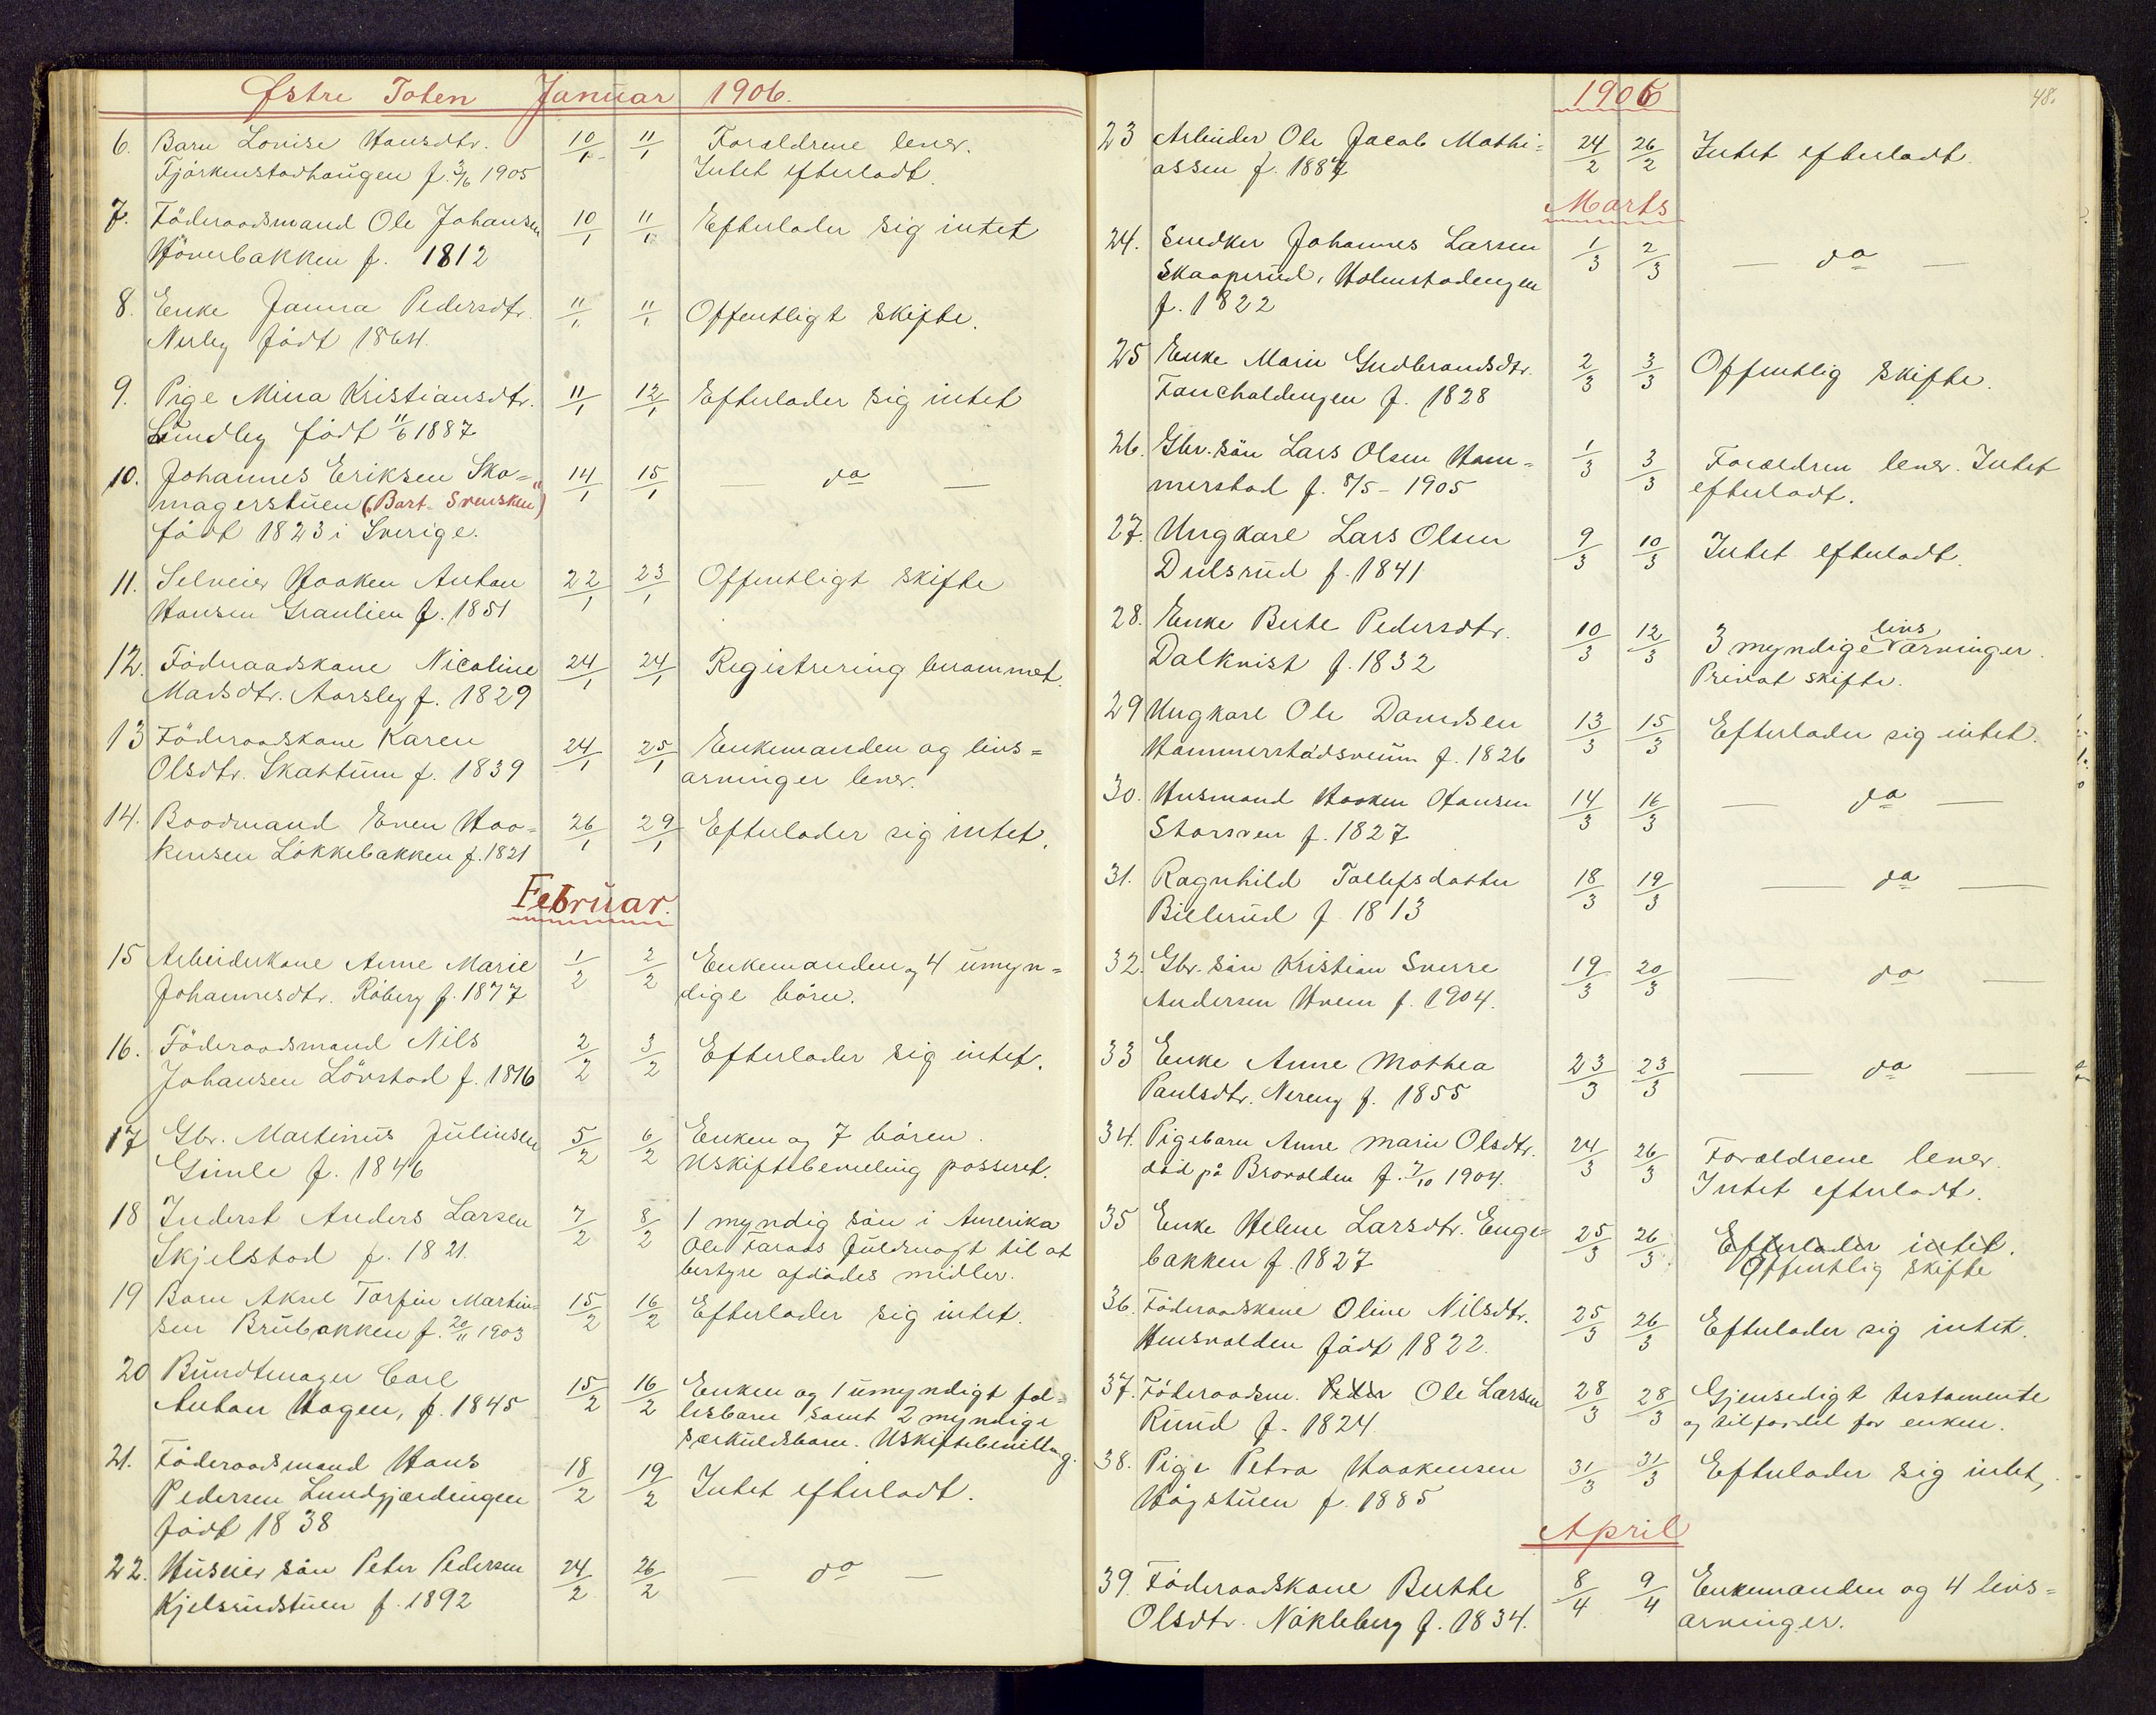 Østre Toten Januar 1906.
6. Barn Lovise Hansdtr. 10/1 11/1 Forældrene lever.
Fjörkenstadhaugen f. 3/6 1905 Intet efterladt.
7. Föderaadsmand Ole Johansen 10/1 11/1 Efterlader sig intet
Hönerbakken f. 1812
8. Enke Janna Pedersdtr. 11/1 11/1 Offentligt skifte.
Nerby födt 1864.
9. Pige Mina Kristiansdtr. 11/1 12/1 Efterlader sig intet
Lundby födt 11/6 1887
10. Johannes Eriksen Sko- 14/1 15/1 — do —
magerstuen („Bart-Svensken“)
födt 1823 i Sverige.
11. Selveier Haaken Anton 22/1 23/1 Offentligt skifte
Hansen Graulien f. 1851
12. Föderaadskone Nicoline 24/1 24/1 Registrering berammet.
Madsdtr. Aarsby f. 1829
13 Föderaadskone Karen 24/1 25/1 Enkemanden og livs=
Olsdtr. Skattum f. 1839 arvinger lever.
14. Baadmand Even Haa- 26/1 29/1 Efterlader sig intet.
kensen Lökkebakken f. 1821
Februar.
15 Arbeiderkone Anne Marie 1/2 2/2 Enkemanden og 4 umyn=
Johannesdtr. Röberg f. 1877 dige börn.
16. Föderaadsmand Nils 2/2 3/2 Efterlader sig intet.
Johansen Lövstad f. 1816
17 Gbr. Martinus Juliusen 5/2 6/2 Enken og 7 bören.
Gimle f. 1846 Uskiftebeveling passeret.
18 Inderst Anders Larsen 7/2 8/2 1 myndig sön i Amerika
Skjelstad f. 1821. Ole Faraas fuldmagt til at
bestyre afdödes midler.
19 Barn Aksel Torfin Martin- 15/2 16/2 Efterlader sig intet.
sen Brubakken f. 20/11 1903
20 Bundtmager Carl 15/2 16/2 Enken og 1 umyndigt fæl-
Anton Hagen, f. 1845 lesbarn samt 2 myndige
særkuldsbarn. Uskiftebevilling.
21. Föderaadsmand Hans 18/2 19/2 Intet efterladt.
Pedersen Lundgjærdingen
födt 1838
22. Huseier sön Peter Pedersen 24/2 26/2 — do —
Kjelsrudstuen f. 1892
1906 48.
23 Arbeider Ole Jacob Mathi= 24/2 26/2 Intet efterladt.
assen f. 1887
Marts
24. Snedker Johannes Larsen 1/3 2/3 — do —
Skaaprud, Holmstadengen
f. 1822
25 Enke Marie Gudbrandsdtr. 2/3 3/3 Offentlig skifte.
f. 1828
26. Gbr. sön Lars Olsen Ham= 1/3 3/3 Forældren lever. Intet
merstad f. 8/5 - 1905 efterladt.
27. Ungkarl Lars Olsen 9/3 10/3 Intet efterladt.
Dulsrud f. 1841
28. Enke Berte Pedersdtr. 10/3 12/3 3 myndige livsarvinger.
Dalkvist f. 1832 Privat skifte.
29 Ungkarl Ole Davidsen 13/3 15/3 Efterlader sig intet.
Hammerstadsveum f. 1826
30. Husmand Haaken Hansen 14/3 16/3 — do —
Storsven f. 1827
31. Ragnhild Tollefsdatter 18/3 19/3 — do —
Bilerud f. 1813
32. Gbr. sön Kristian Sverre 19/3 20/3 — do —
Andersen Hvem f. 1904.
33 Enke Anne Mathea 23/3 23/3 — do —
Paulsdtr. Nereng f. 1855
34. Pigebarn Anne Marie Olsdtr. 24/3 26/3 Forældrene lever.
död på Brovolden f. 7/10 1904. Intet efterladt.
35 Enke Helene Larsdtr. Enge= 25/3 26/3 Efterlader intet.
bakken f. 1827 Offentlig skifte
36. Föderaadskone Oline Nilsdtr. 25/3 26/3 Efterlader sig intet.
Husvolden födt 1822.
37. Föderaadsm. Peder Ole Larsen 28/3 28/3 Gjensedigt testamente
Rund f. 1824. og til fordel for enken.
38. Pige Petra Haakensen 31/3 31/3 Efterlader sig intet,
Högstuen f. 1885
April
39. Föderaadskone Berthe 8/4 9/4 Enkemanden og 4 livs=
Olsdtr. Nökleberg f. 1834. arvinger.